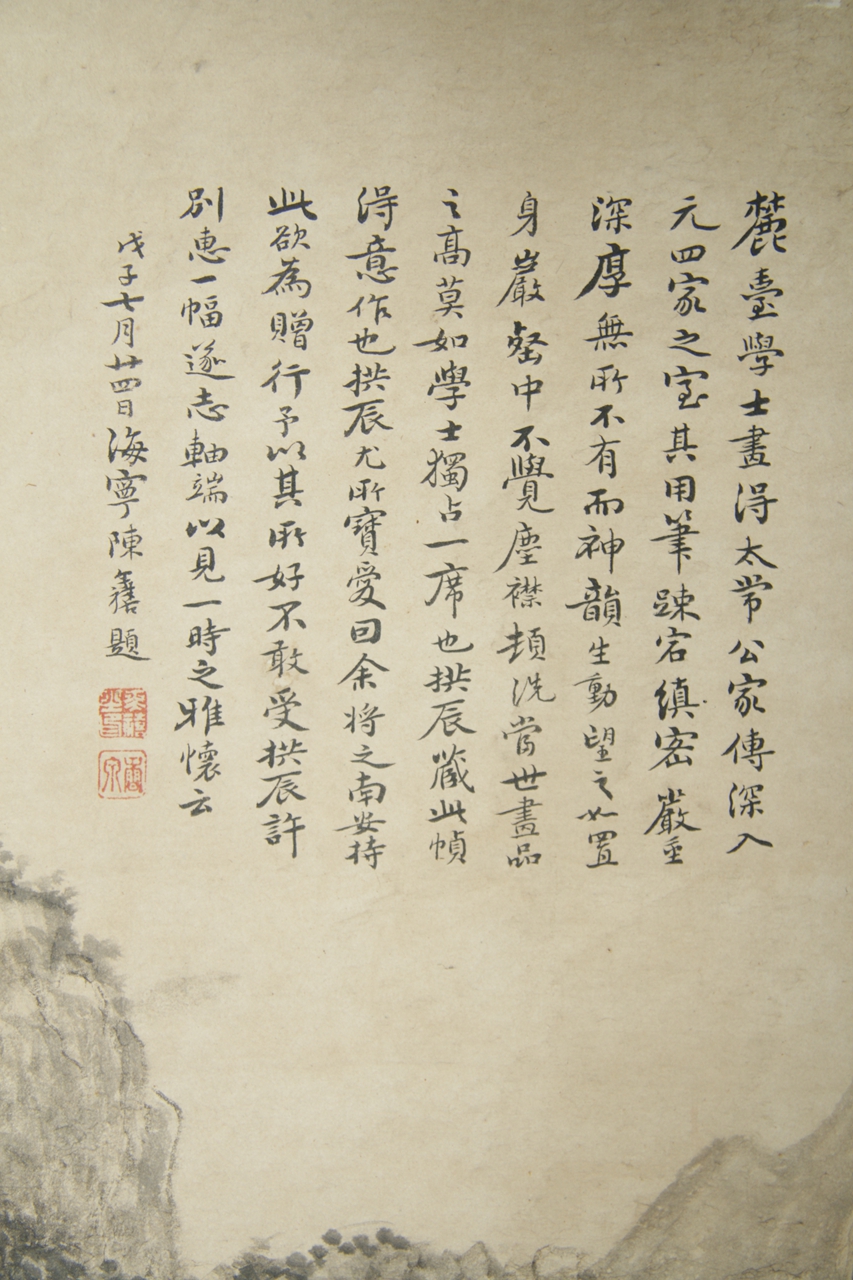 麓臺學士畫得太常公家傳深入
元四家之室其用筆疎宕縝密嚴重
深厚無所不有而神韻生動望之如置
身巖壑中不覺塵襟頓洗當世畫品
之高莫如學士獨占一席也拱辰藏此幀
得意作也拱辰尤所寶愛曰余將之南安持
此欲為贈行予以其所好不敢受拱辰許
別惠一幅遂志軸端以見一時之雅懷云
戊子七月廿四日海寧陳奕禧題